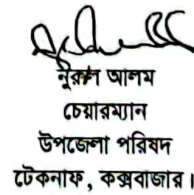 নুরুল আলম
চেয়ারম্যান
উপজেলা পরিষদ
টেকনাফ, কক্সবাজার।